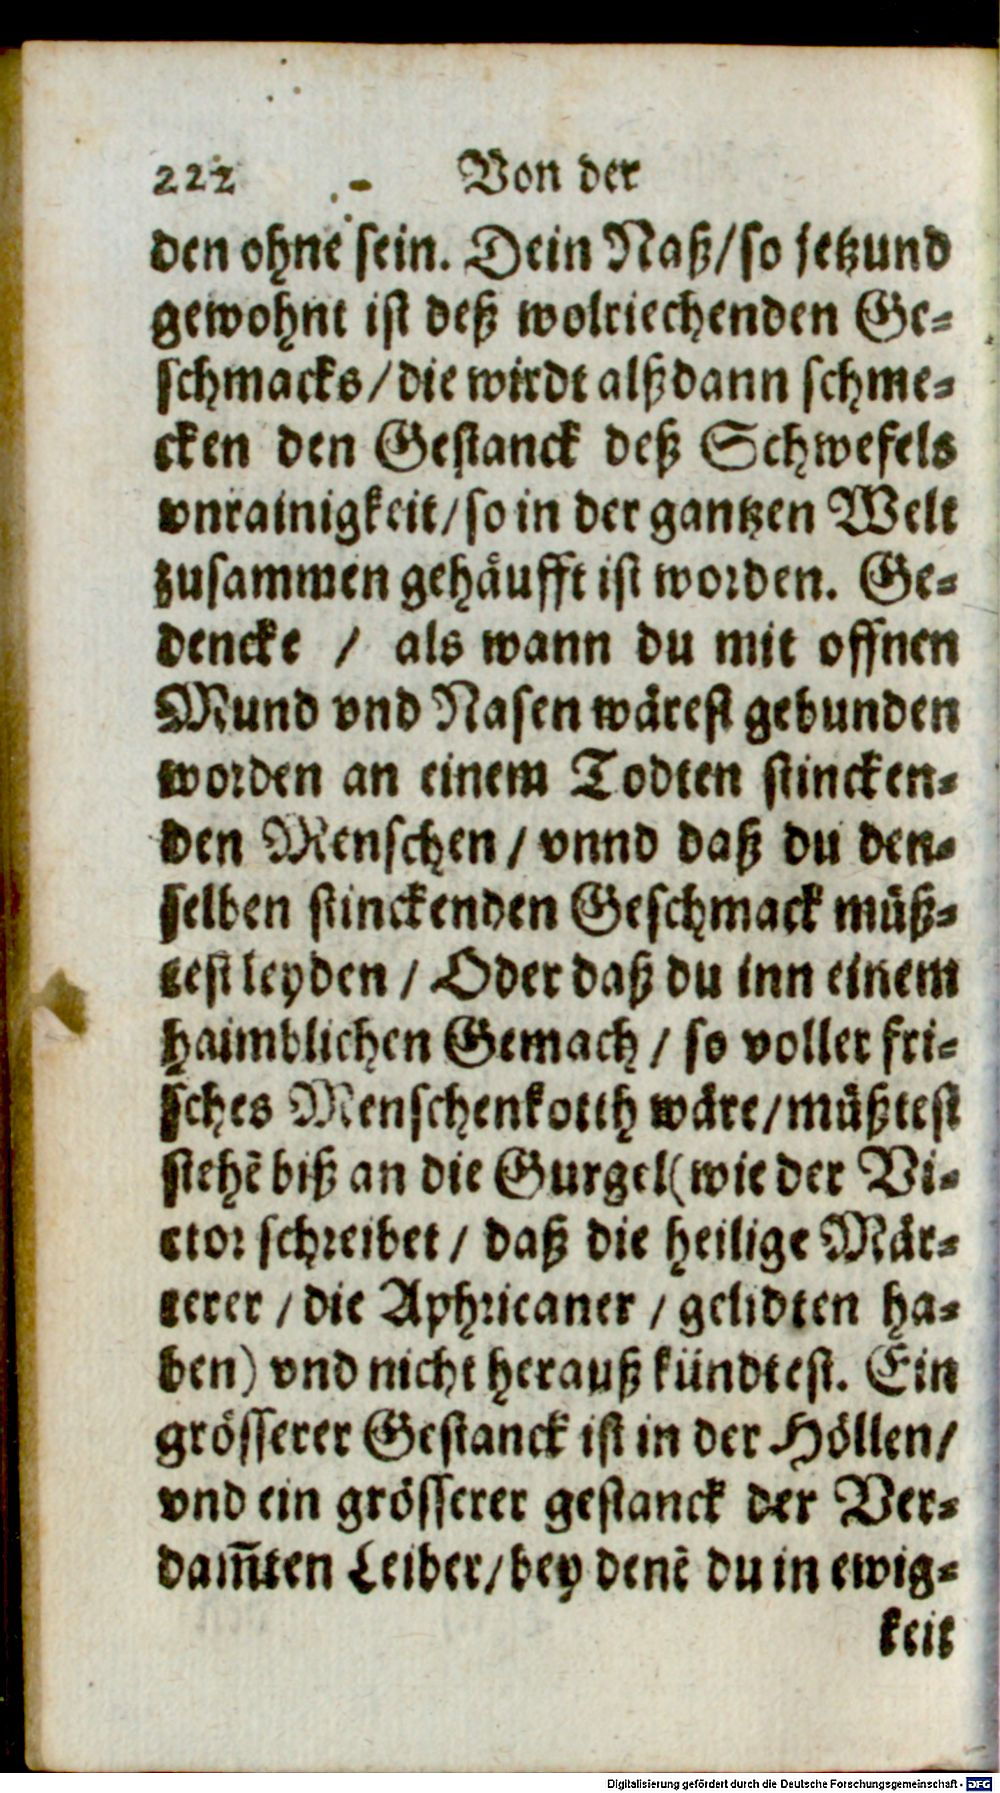 222 Von der
den ohne sein. Dein Naß/so jetzund
gewohnt ist deß wolriechenden Ge-
schmacks/die wirdt alßdann schme-
cken den Gestanck deß Schwefels
vnrainigkeit/so in der gantzen Welt
zusammen gehäufft ist worden. Ge-
dencke / als wann du mit offnen
Mund vnd Nasen wärest gebunden
worden an einem Todten stincken-
den Menschen / vnnd daß du den-
selben stinckenden Geschmack müß-
test leyden / Oder daß du inn einem
haimblichen Gemach / so voller fri-
sches Menschenkotth wäre/müßtest
stehē biß an die Gurgel(wie der Vi-
ctor schreibet / daß die heilige Mär-
terer / die Aphricaner / gelidten ha-
ben) vnd nicht herauß kündtest. Ein
grösserer Gestanck ist in der Höllen/
vnd ein grösserer gestanck der Ver-
dam̄ten Leiber/bey denē du in ewig-
keit
Digitalisierung gefördert durch die Deutsche Forschungsgemeinschaft - DFG